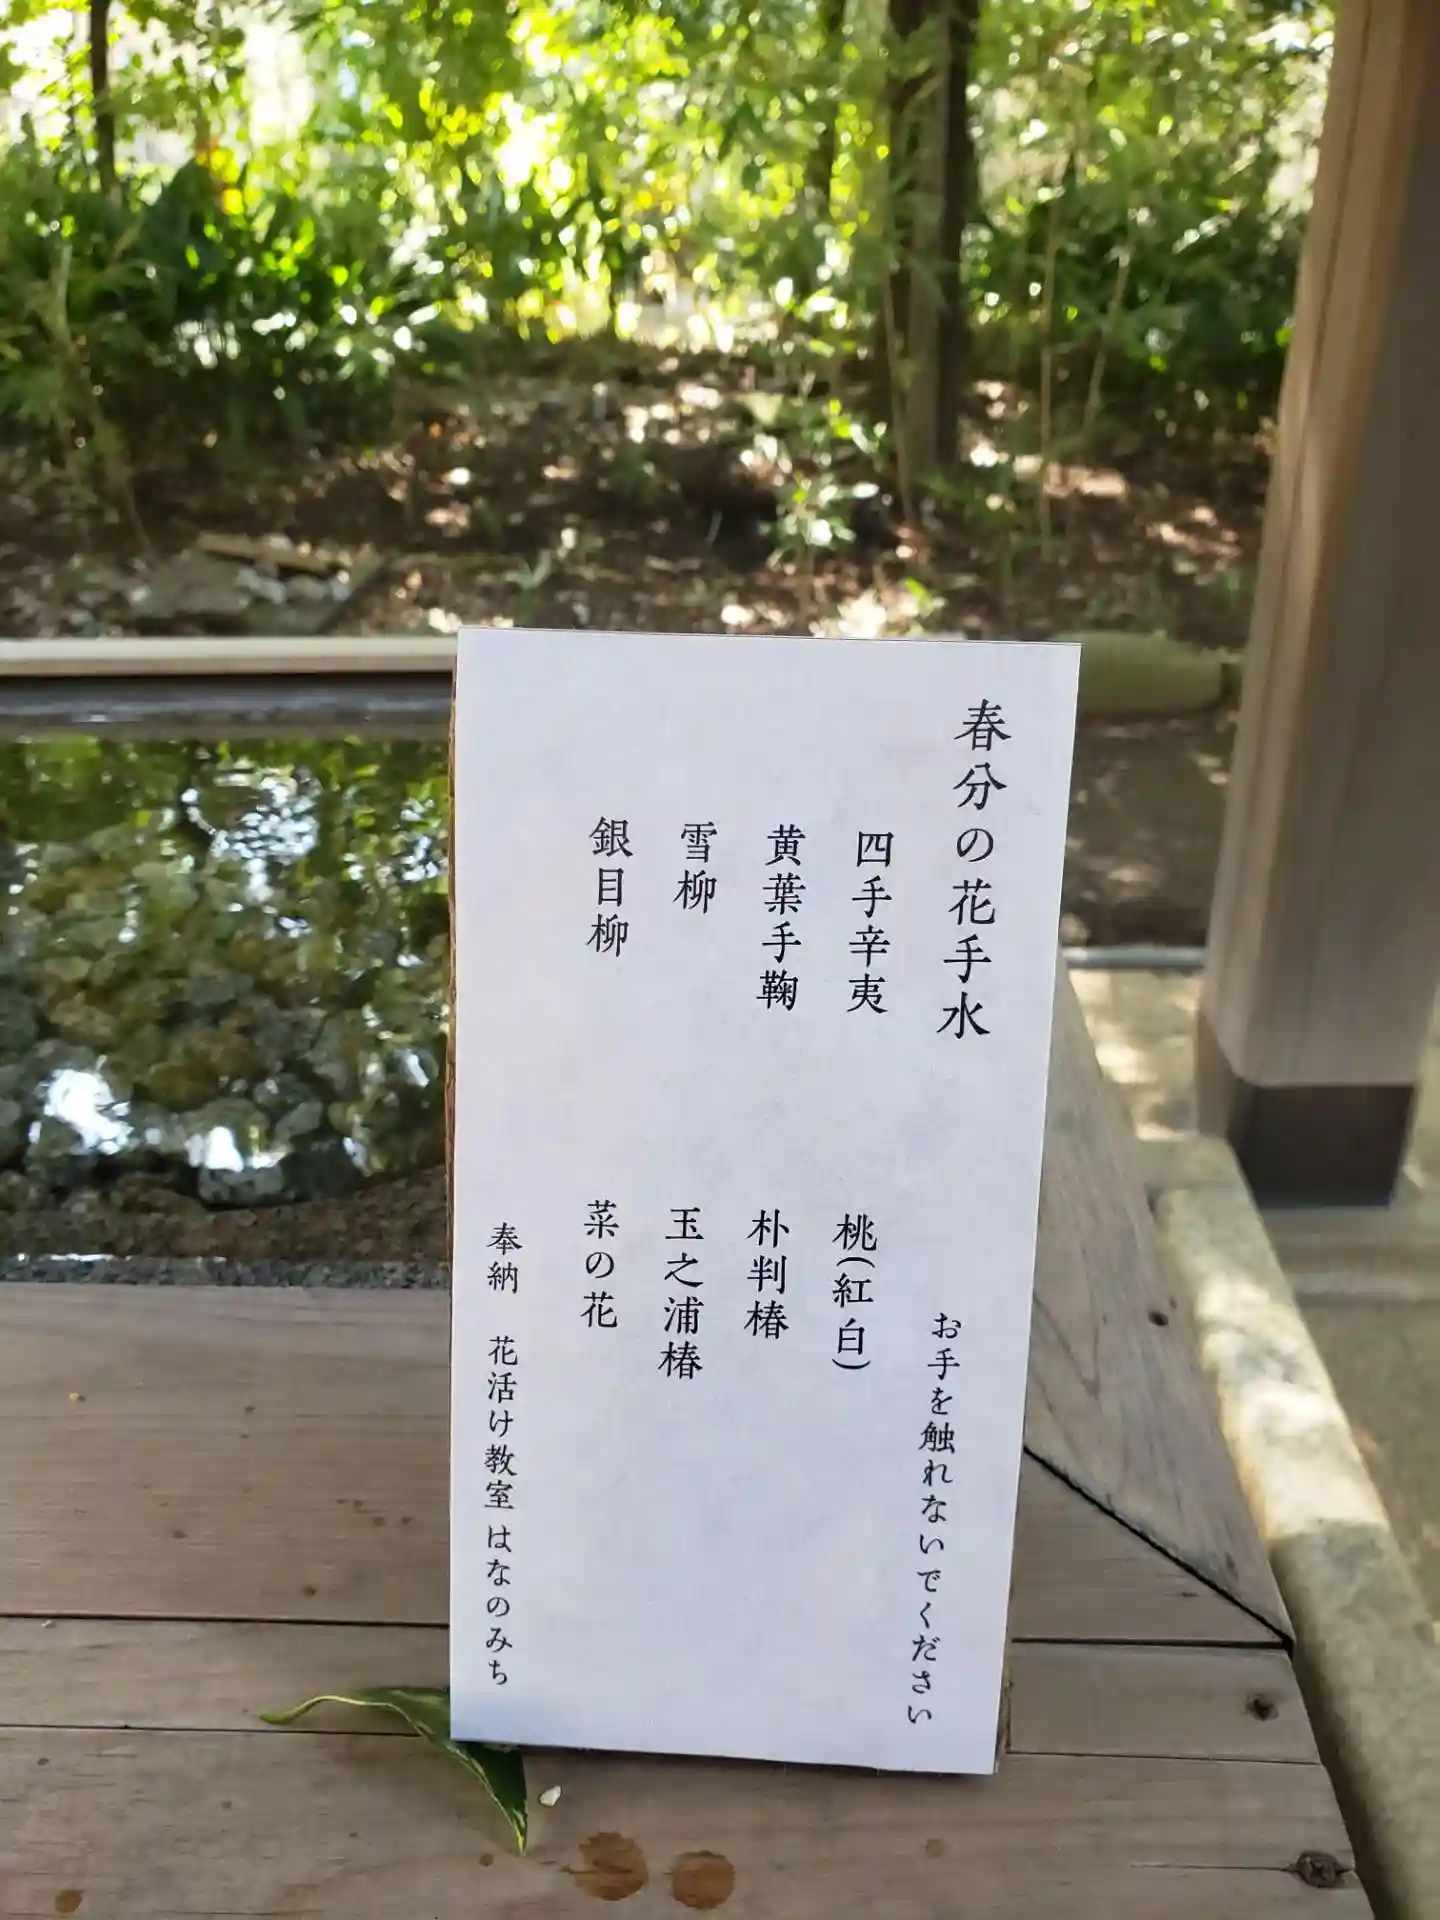 春分の花手水
お手を触れないでください
四手辛夷
桃(紅白)
黄葉手鞠
朴判椿
雪柳
玉之浦椿
銀目柳
菜の花
奉納 花活け教室 はなのみち